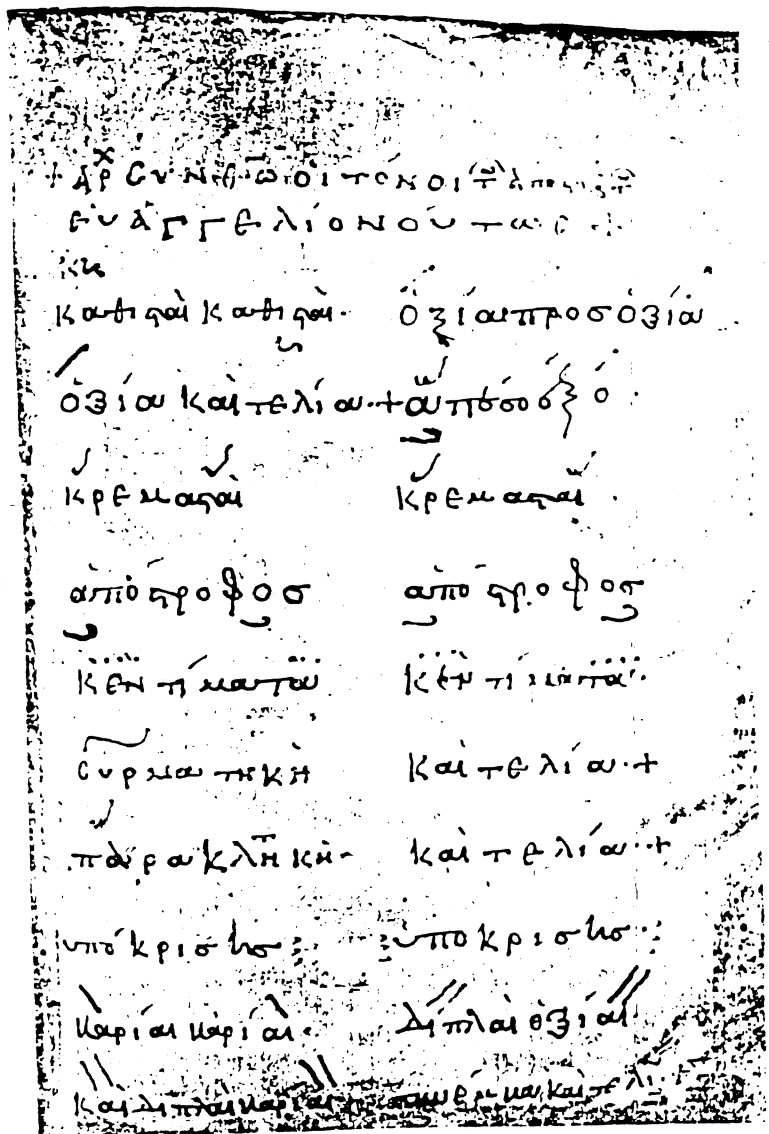 + Ἀρχ σὺν θῶ οἱ τόνοι
εὐαγγέλιον οὕτωσ +
καθισταὶ καθισταὶ· ὀξίαι προσ ὀξία
ὀξία καὶ τελία·+
κρεμασταὶ κρεμασταὶ ·
ἀπόστροφοσ ἀπόστροφοσ
κὲντίματα κὲντίματα·
συρματηκὴ καὶ τελία·+
παρακλητηκὴ· καὶ τελία·+
ὑπόκρισησ ὑπόκρισησ
βαρίαι βαρίαι· διπλαὶ ὀξίαι
καὶ διπλαὶ βαρίαι καὶ τελι